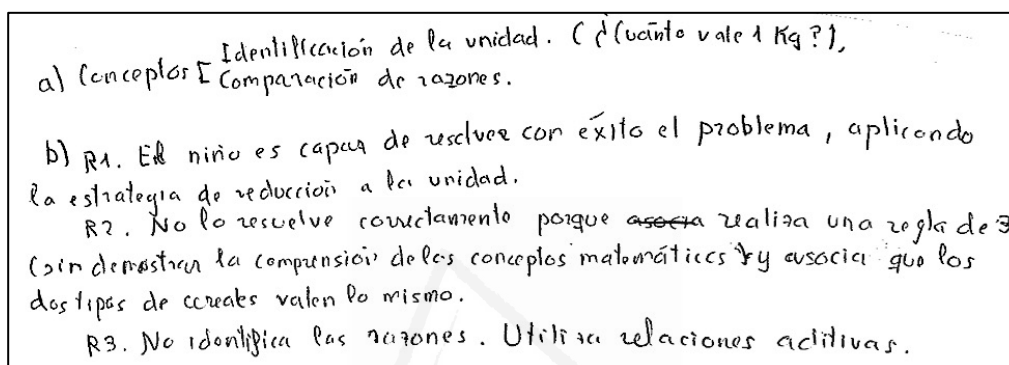 a) Conceptos [ Identificación de la unidad. (¿Cuánto vale 1 Kg?),
Comparación de razones.
b) R1. El niño es capaz de resolver con éxito el problema, aplicando
la estrategia de reducción a la unidad.
R2. No lo resuelve correctamente porque asocia realiza una regla de 3
(sin demostrar la comprensión de los conceptos matemáticos) y asocia que los
dos tipos de cereales valen lo mismo.
R3. No identifica las razones. Utiliza relaciones aditivas.